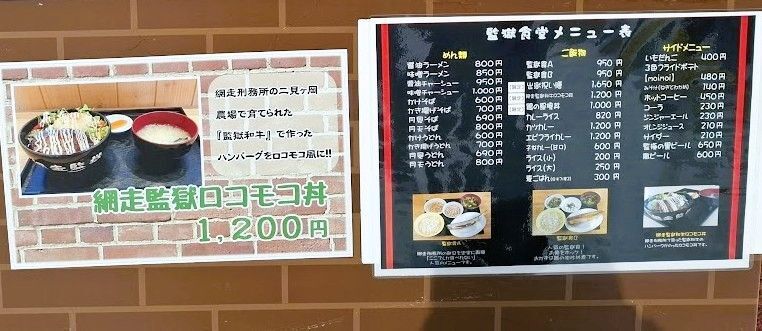 網走刑務所の二見ヶ岡
農場で育てられた
『監獄和牛』で作った
ハンバーグをロコモコ風に!!
網走監獄ロコモコ丼
1,200円
監獄食堂メニュー表
めん類
醤油ラーメン 800円
味噌ラーメン 850円
醤油チャーシュー 950円
味噌チャーシュー 1,000円
かけそば 600円
かき揚げそば 700円
月見そば 700円
かけうどん 600円
かき揚げうどん 700円
月見うどん 700円
二飯物
監獄食A 950円
監獄食B 950円
出所祝い膳 1,650円
1,200円
カレーライス 820円
カツカレー 1,200円
エビフライカレー 1,200円
子供カレー(甘口) 600円
ライス(小) 200円
ライス(大) 250円
麦ごはん 300円
サイドメニュー
いもだんご 400円
3色フライドポテト
【moimoi】 480円
ホットコーヒー 450円
コーラ 230円
ジンジャーエール 230円
オレンジジュース 210円
サイダー 210円
監極の雪ビール 650円
瓶ビール 600円
監獄食A
監獄食B
網走監獄和牛ロコモコ丼
人気のメニューです。